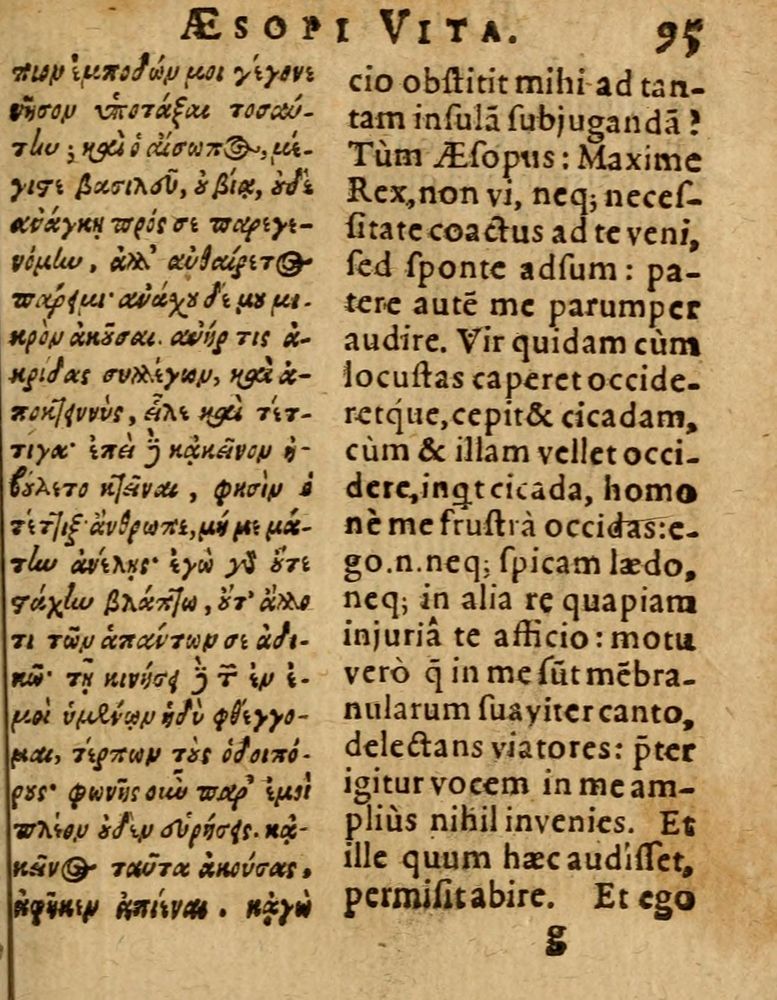 ÆSOPI VITA. 95
πιομ ἐμποδώμ μοι γέγονε
νῆσομ ὑποτάξαι τοσαύ-
την; καὶ ὁ αἴσωπος, μέ-
γιστε βασιλεῦ, οὐ βίᾳ, οὐδὲ
ἀνάγκῃ πρός σε παρεγε-
νόμην, ἀλλ' αὐθαίρετος
πάρειμι· ἀνάχου δέ μου μι-
κρὸμ ἀκοῦσαι. ἀνήρ τις ἀ-
κρίδας συλλέγωμ, καὶ ἀ-
ποκτεινννὺς, εἷλε καὶ τέτ-
τιγα· ἐπεὶ δὲ κἀκεῖνομ ἠ-
βούλετο κτεῖναι, φησὶμ ὁ
τέττιξ· ἄνθρωπε, μή με μά-
την ἀνέλῃς· ἐγὼ γὰρ οὔτε
στάχυν βλάπτω, οὔτ' ἄλλο
τι τῶμ ἁπάντωμ σε ἀδι-
κῶ· τῇ κινήσει δὲ τῶν ἐμ ἐ-
μοὶ ὑμένωμ ἡδὺ φθέγγο-
μαι, τέρπωμ τοὺς ὁδοιπό-
ρους· φωνῆς οὖν παρ' ἐμοὶ
πλέομ οὐδὲμ εὑρήσεις. κἀ-
κεῖνος ταῦτα ἀκούσας,
ἀφῆκεμ ἀπιέναι. κἀγὼ
cio obstitit mihi ad tan-
tam insulã subjugandã?
Tùm Æsopus: Maxime
Rex, non vi, neq; neces-
sitate coactus ad te veni,
sed sponte adsum: pa-
tere autẽ me parumper
audire. Vir quidam cùm
locustas caperet occide-
retq́ue, cepit & cicadam,
cùm & illam vellet occi-
dere, inqt cicada, homo
nè me frustrà occidas: e-
go .n. neq; spicam lædo,
neq; in alia re quapiam
injuriâ te afficio: motu
verò q̃ in me sũt mẽbra-
nularum suaviter canto,
delectans viatores: p̃ter
igitur vocem in me am-
pliùs nihil invenies. Et
ille quum hæc audisset,
permisit abire. Et ego
g